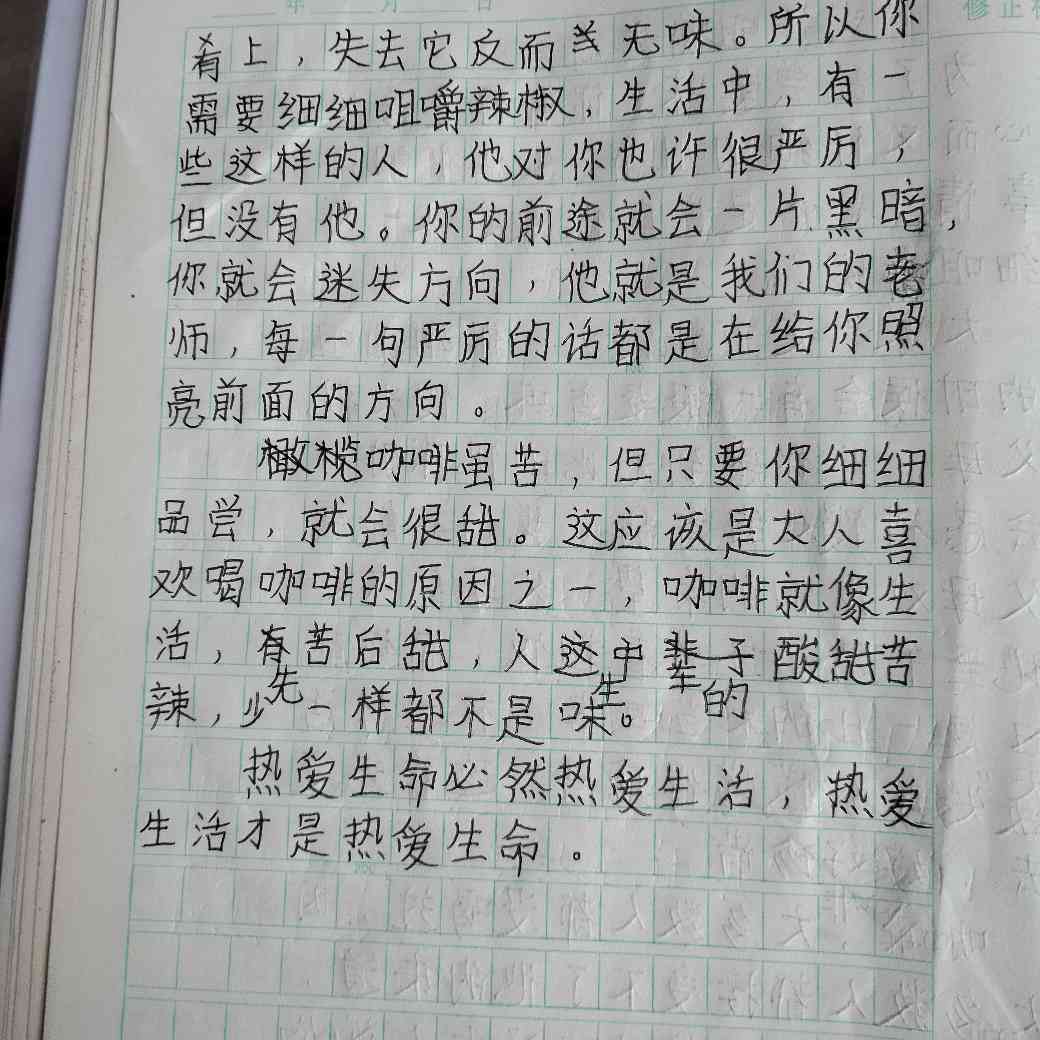 年 月 日
修正
肴上，失去它反而 无味。所以你
需要细细咀嚼辣椒，生活中，有一
些这样的人，他对你也许很严厉，
但没有他。你的前途就会一片黑暗，
你就会迷失方向，他就是我们的老
师，每一句严厉的话都是在给你照
亮前面的方向。
橄榄咖啡虽苦，但只要你细细
品尝，就会很甜。这应该是大人喜
欢喝咖啡的原因之一，咖啡就像生
活，有苦后甜，人这中辈子酸甜苦
先 生 的
辣，少一样都不是味。
热爱生命必然热爱生活，热爱
生活才是热爱生命。